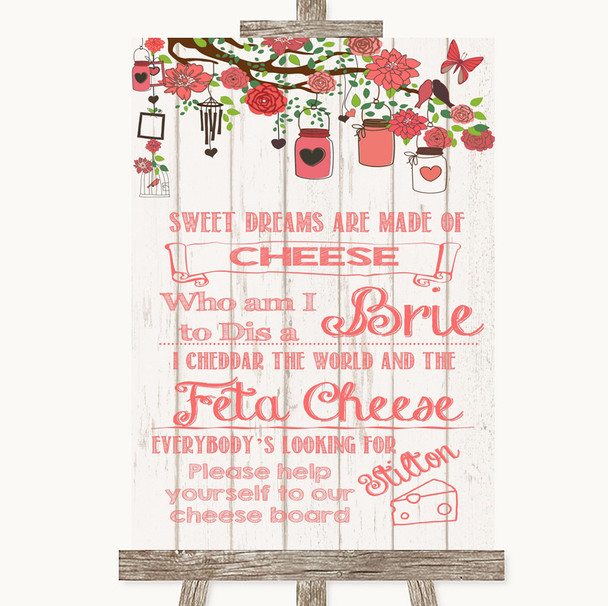 SWEET DREAMS ARE MADE OF
CHEESE
Who am I
to Dis a
Brie
I CHEDDAR THE WORLD AND THE
Feta Cheese
EVERYBODY'S LOOKING FOR
Stilton
Please help
yourself to our
cheese board